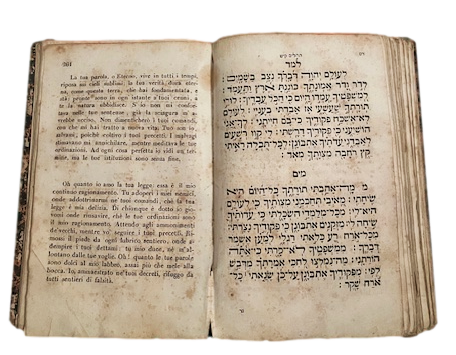 La tua parola, o Eterno, vive in tutti i tempi,
riposa su cieli sublimi, le tua verità, dura eterna,
come questa terra, che hai fondamentata, e
sta: pronte sono in ogn' istante a tuoi cenni, a
te la natura ubbidisce. S'io non mi confortava
nelle tue sentenze, già la sciagura m'avrebbe
ucciso. Non dimenticherò i tuoi comandi,
con che mi hai tratto a nuova vita. Tuo son io,
salvami, poichè coltivo i tuoi precetti. I malvagi
stimavano mi annichilare, mentre meditava le tue
ordinazioni. Ad ogni cosa perfetta io vidi un termine,
ma le tue istituzioni sono senza fine.
Oh quanto io amo la tua legge: essa è il mio
continuo ragionamento. Tu adoperi i miei nemici,
onde addottrinarmi ne' tuoi comandi, chè la tua
legge è mia delizia. Di chiunque è fonte io giovami
onde rinsavire, chè le tue ordinazioni sono
il mio ragionamento. Attendo agli ammonimenti
de' vecchi, mentre vo' seguire i tuoi precetti. Rimossi
il piede da ogni lubrico sentiero, onde adempiere
i tuoi dettami: tu mio duce, nè m'allontano
dalle tue voglie. Oh! quanto le tue parole
sono dolci al mio labbro, assai più che mele alla
bocca. Io, ammaestrato ne' tuoi decreti, rifuggo da
tutti sentieri di falsità.
למד
לְעוֹלָם יְהוָה דְּבָרְךָ נִצָּב בַּשָּׁמָיִם:
לְדֹר וָדֹר אֱמוּנָתֶךָ כּוֹנַנְתָּ אֶרֶץ וַתַּעֲמֹד:
לְמִשְׁפָּטֶיךָ עָמְדוּ הַיּוֹם כִּי הַכֹּל עֲבָדֶיךָ: לוּלֵי
תוֹרָתְךָ שַׁעֲשֻׁעָי אָז אָבַדְתִּי בְעָנְיִי: לְעוֹלָם
לֹא־אֶשְׁכַּח פִּקּוּדֶיךָ כִּי־בָם חִיִּיתָנִי: לְךָ־אֲנִי
הוֹשִׁיעֵנִי כִּי פִקּוּדֶיךָ דָרָשְׁתִּי: לִי קִוּוּ רְשָׁעִים
לְאַבְּדֵנִי עֵדֹתֶיךָ אֶתְבּוֹנָן: לְכָל־תִּכְלָה רָאִיתִי
קֵץ רְחָבָה מִצְוָתְךָ מְאֹד:
מים
מָה־אָהַבְתִּי תוֹרָתֶךָ כָּל־הַיּוֹם הִיא
שִׂיחָתִי: מֵאֹיְבַי תְּחַכְּמֵנִי מִצְוֹתֶךָ כִּי לְעוֹלָם
הִיא־לִי: מִכָּל־מְלַמְּדַי הִשְׂכַּלְתִּי כִּי עֵדְוֹתֶיךָ
שִׂיחָה לִי: מִזְּקֵנִים אֶתְבּוֹנָן כִּי פִקּוּדֶיךָ נָצָרְתִּי:
מִכָּל־אֹרַח רָע כָּלִאתִי רַגְלָי לְמַעַן אֶשְׁמֹר
דְּבָרֶךָ: מִמִּשְׁפָּטֶיךָ לֹא־סָרְתִּי כִּי־אַתָּה
הוֹרֵתָנִי: מַה־נִּמְלְצוּ לְחִכִּי אִמְרָתֶךָ מִדְּבַשׁ
לְפִי: מִפִּקּוּדֶיךָ אֶתְבּוֹנָן עַל־כֵּן שָׂנֵאתִי כָּל־
אֹרַח שָׁקֶר: